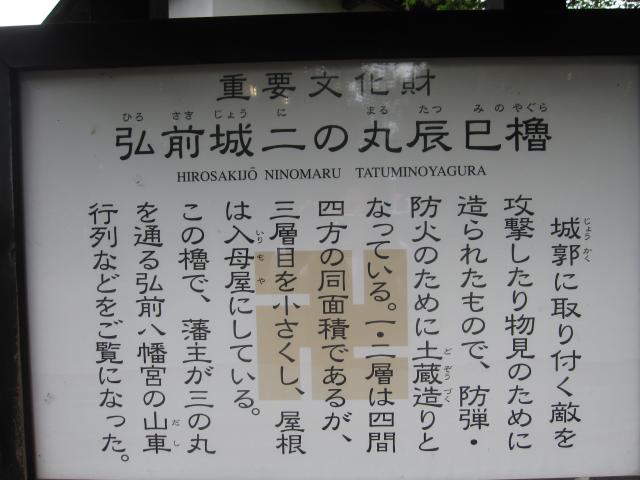 重要文化財
弘前城二の丸辰巳櫓
HIROSAKIJŌ NINOMARU TATUMINOYAGURA
城郭に取り付く敵を
攻撃したり物見のために
造られたもので、防弾・
防火のために土蔵造りと
なっている。一・二層は四間
四方の同面積であるが、
三層目を小さくし、屋根
は入母屋にしている。
この櫓で、藩主が三の丸
を通る弘前八幡宮の山車
行列などをご覧になった。